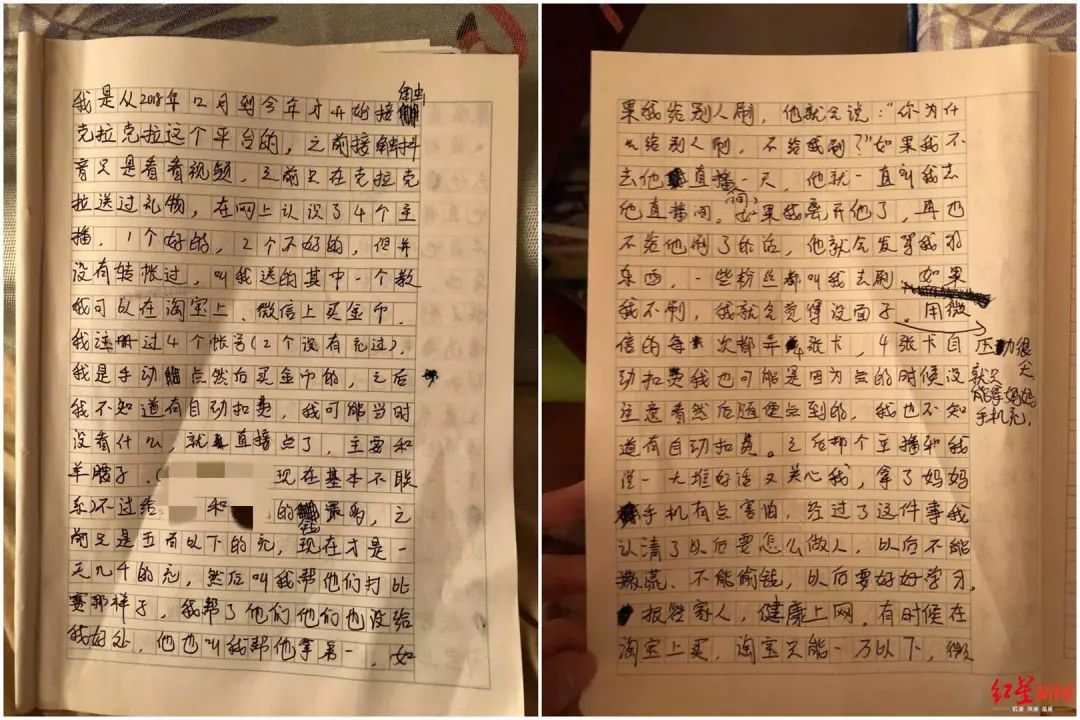 我是从2018年12月到今年才开始接触
克拉克拉这个平台的，之前接触抖
音只是看看视频，之前只在克拉克
拉送过礼物，在网上认识了4个主
播，1个好的，2个不好的，但并
没有转帐过，叫我送的其中一个教
我可以在淘宝上、微信上买金币，
我注册过4个帐号(2个没有充过)，
我是手动点然后买金币的，之后
我不知道有自动扣费，我可能当时
没看什么，就直接点了，主要和
羊腊子（ 现在基本不联
系)不过给 和 的钱最多，之
前只是五百以下的充，现在才是一
天几千的充，然后叫我帮他们打比
赛那样子，我帮了他们他们也没给
我好处，他也叫我帮他拿第一，如
果我给别人刷，他就会说："你为什
么给别人刷，不给我刷？"如果我不
去他直播一天，他就一直叫我去
他直播间。如果我离开他了，再也
不给他刷了的后，他就会发骂我的
东西，一些粉丝都叫我去刷，如果
我不刷，我就会觉得没面子。用微
信的每次都弄4张卡，4张卡自
动扣费我也可能是因为点的时候没
注意看然后随便点到的，我也不知
道有自动扣费。之后那个主播和我
说一大堆好话又关心我，拿了妈妈
手机有点害怕，经过了这件事我
认清了以后要怎么做人，以后不能
撒谎、不能偷钱，以后要好好学习，
报答家人，健康上网。有时候在
淘宝上买，淘宝只能一万以下，微
压力很大
就只
能拿妈妈
手机充，
红星新闻